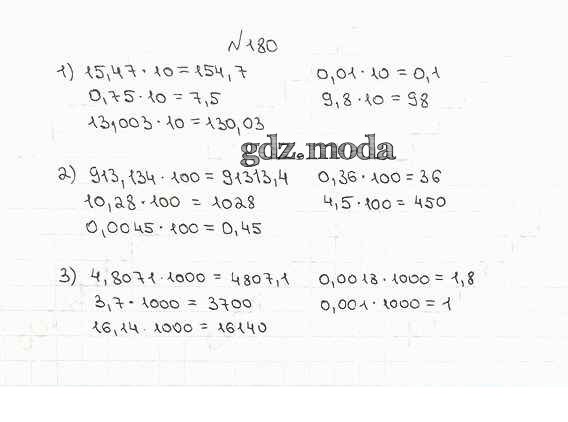 №180
1) 15,47·10=154,7 0,01·10=0,1
0,75·10=7,5 9,8·10=98
13,003·10=130,03
gdz.moda
2) 913,134·100=91313,4 0,36·100=36
10,28·100=1028 4,5·100=450
0,0045·100=0,45
3) 4,8071·1000=4807,1 0,0018·1000=1,8
3,7·1000=3700 0,001·1000=1
16,14·1000=16140